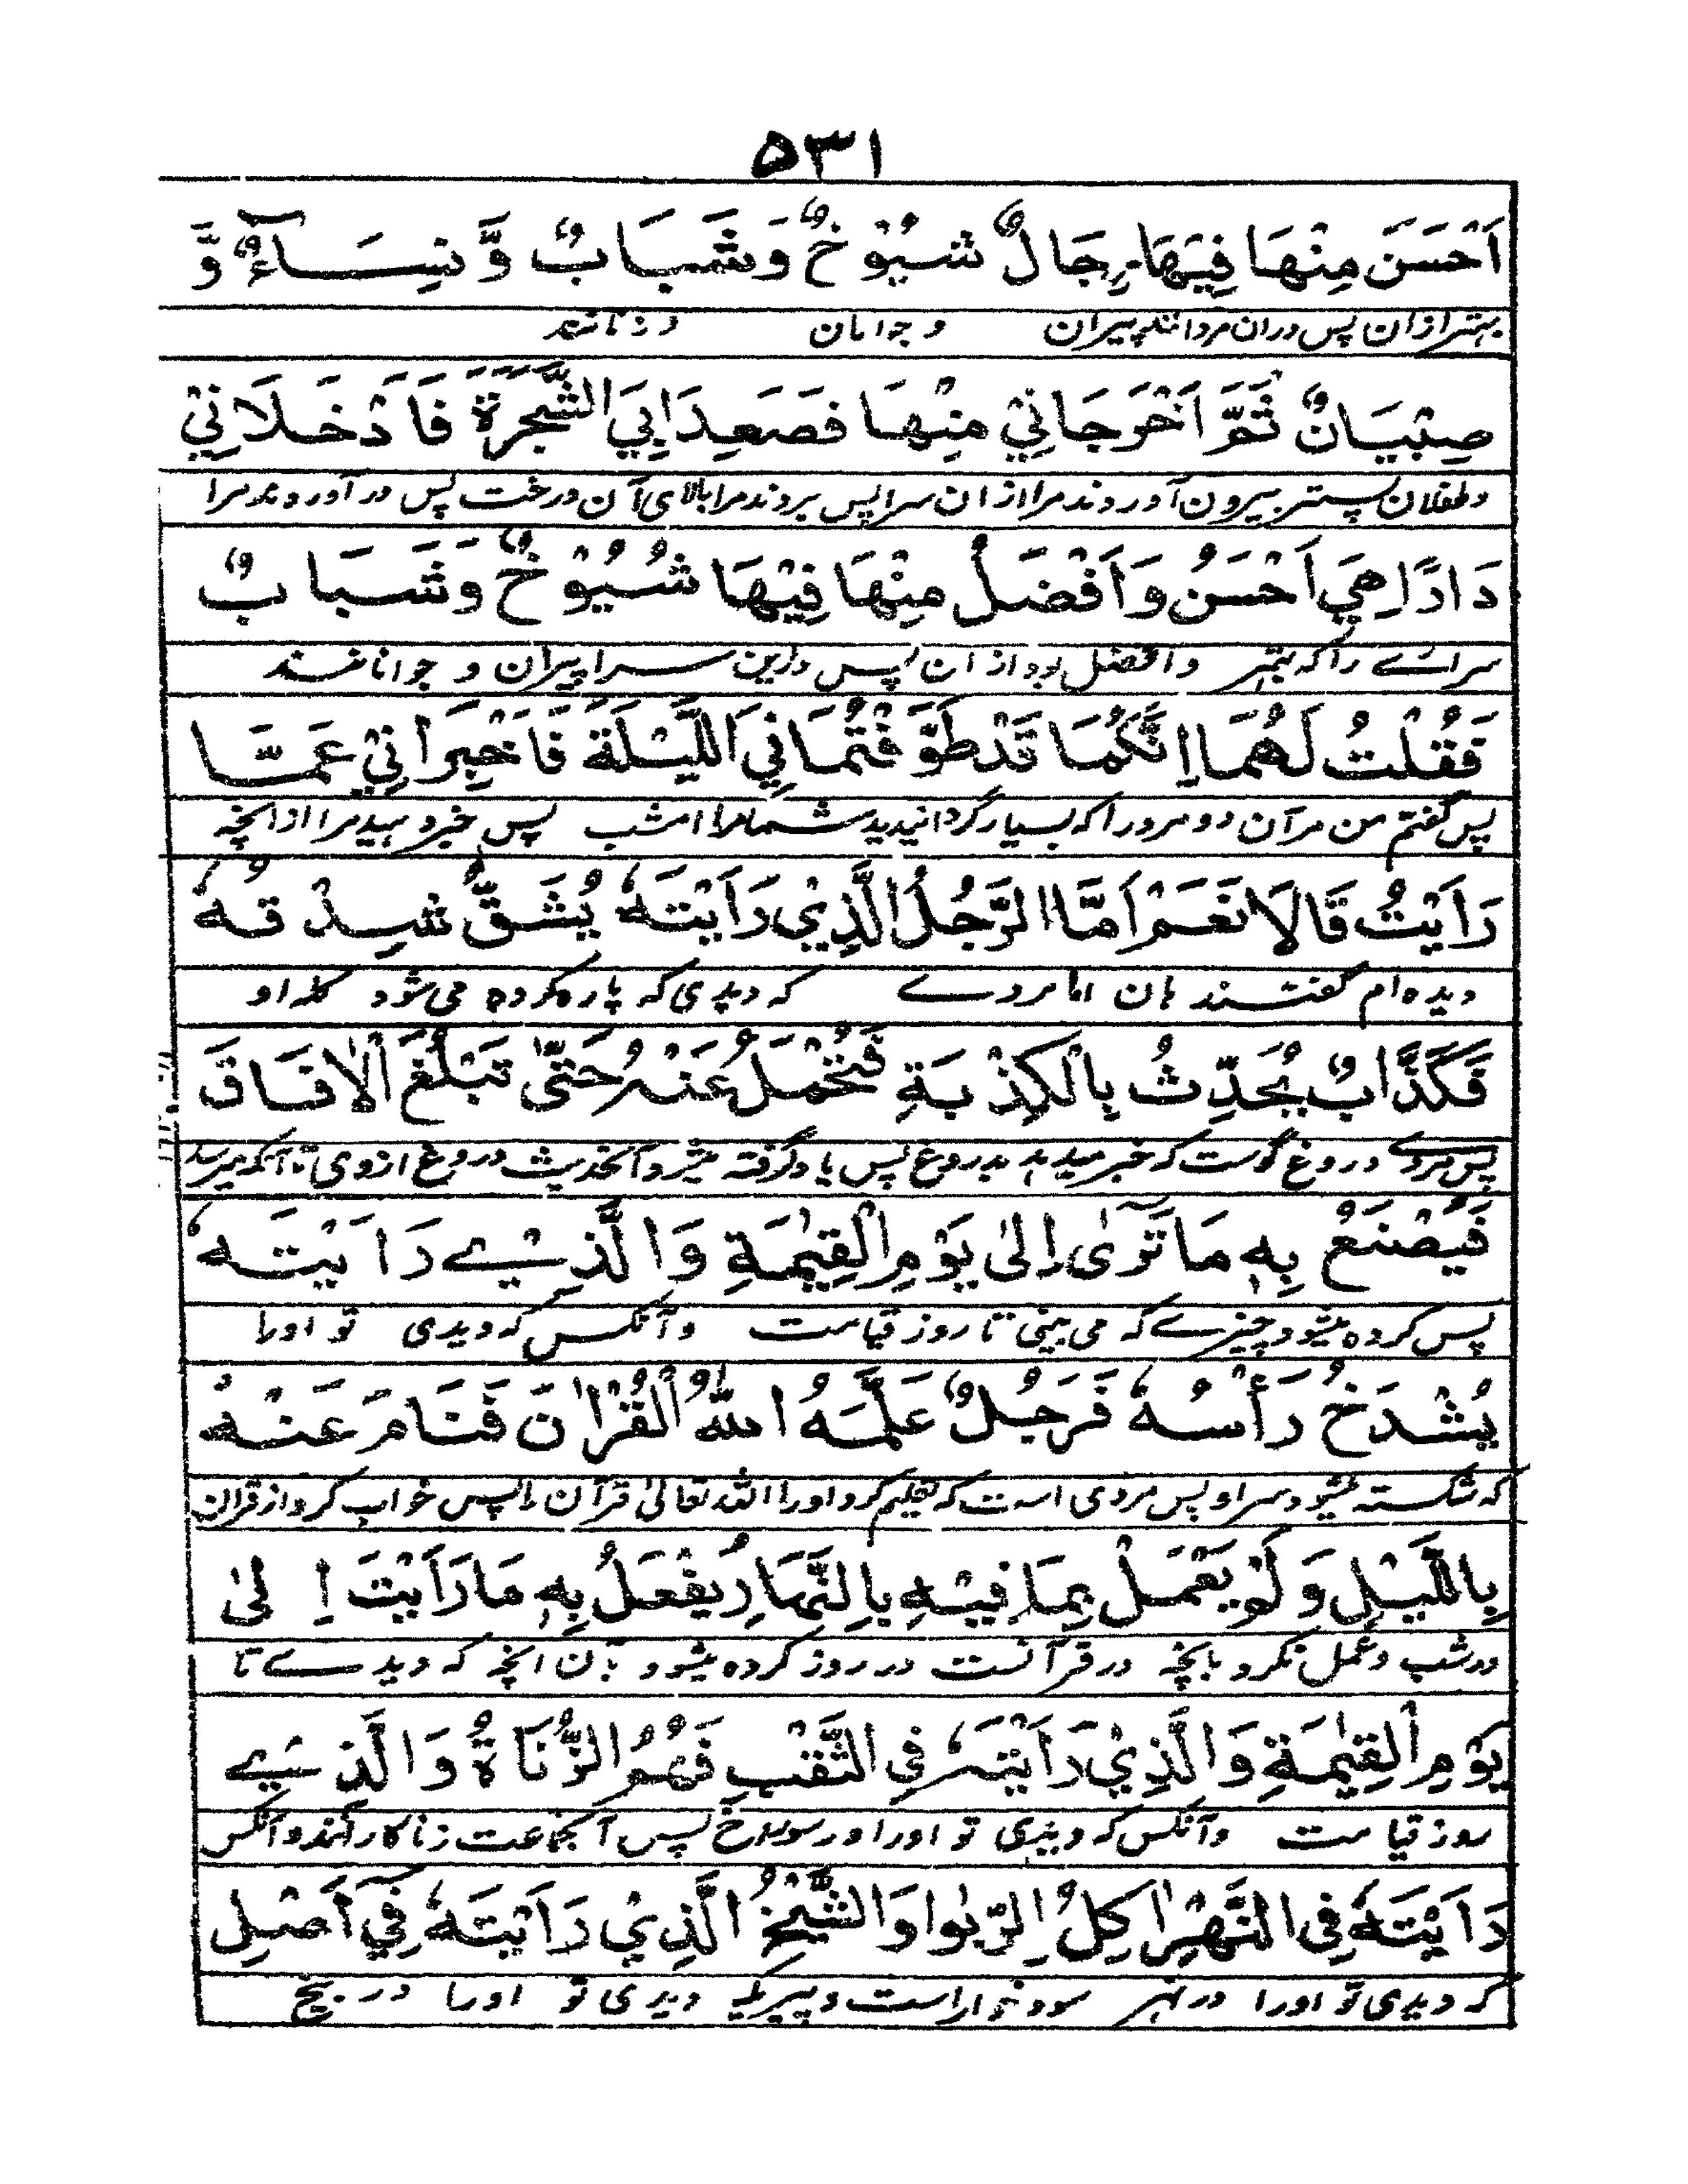 ۵۳۱
اَحْسَنَ مِنْهَا فِيْهَا رِجَالٌ شُيُوْخٌ وَشَبَابٌ وَّنِسَآءٌ وَّ
بہتر ازان پس دران مردانند پیران و جوانان و زنانند
صِبْيَانٌ ثُمَّ اَخْرَجَانِيْ مِنْهَا فَصَعِدَا بِيَ الشَّجَرَةَ فَاَدْخَلَانِيْ
و طفلان پستر بیرون آوردند مرا ازان سرا پس بردند مرا بالای آن درخت پس در آوردند مرا
دَارًا هِيَ اَحْسَنُ وَاَفْضَلُ مِنْهَا فِيْهَا شُيُوْخٌ وَشَبَابٌ
سرائے را که بہتر و افضل بود ازان پس دراین سرا پیران و جوانانند
فَقُلْتُ لَهُمَا اِنَّكُمَا قَدْ طَوَّفْتُمَانِي اللَّيْلَةَ فَاَخْبِرَانِيْ عَمَّا
پس گفتم من مر آن دو مرد را که بسیار گردانیدید شما مرا امشب پس خبر دہید مرا ازانچه
رَاَيْتُ قَالَا نَعَمْ اَمَّا الرَّجُلُ الَّذِيْ رَاَيْتَهٗ يُشَقُّ شِدْقُهٗ
دیده ام گفتند ہان اما مردے که دیدی که پاره کرده می شود کله او
فَكَذَّابٌ يُحَدِّثُ بِالْكِذْبَةِ فَتُحْمَلُ عَنْهُ حَتّٰى تَبْلُغَ الْاٰفَاقَ
پس مردے دروغ گوست که خبر میدہد بدروغ پس یاد گرفته میشود آنحدیث دروغ ازوی تا آنکه میرسد
فَيُصْنَعُ بِهٖ مَا تَرٰى اِلٰى يَوْمِ الْقِيٰمَةِ وَالَّذِيْ رَاَيْتَهٗ
پس کرده میشود چیزے که می بینی تا روز قیامت و آنکس که دیدی تو اورا
يُشْدَخُ رَأْسُهٗ فَرَجُلٌ عَلَّمَهُ اللّٰهُ الْقُرْاٰنَ فَنَامَ عَنْهُ
که شکسته میشود سر او پس مردی است که تعلیم کرد اورا الله تعالیٰ قرآن را پس خواب کرد از قران
بِاللَّيْلِ وَلَمْ يَعْمَلْ بِمَا فِيْهِ بِالنَّهَارِ يُفْعَلُ بِهٖ مَا رَاَيْتَ اِلٰى
در شب و عمل نکرد بانچه در قرآنست در روز کرده میشود بان انچه که دیدے تا
يَوْمِ الْقِيٰمَةِ وَالَّذِيْ رَاَيْتَهٗ فِي الثَّقْبِ فَهُمُ الزُّنَاةُ وَالَّذِيْ
روز قیامت و آنکس که دیدی تو اورا در سوراخ پس آنجماعت زناکارانند و آنکس
رَاَيْتَهٗ فِي النَّهْرِ اٰكِلُ الرِّبٰوا وَالشَّيْخُ الَّذِيْ رَاَيْتَهٗ فِيْ اَصْلِ
که دیدی تو اورا در نہر سودخوار است و پیریکه دیدی تو اورا در بیخ